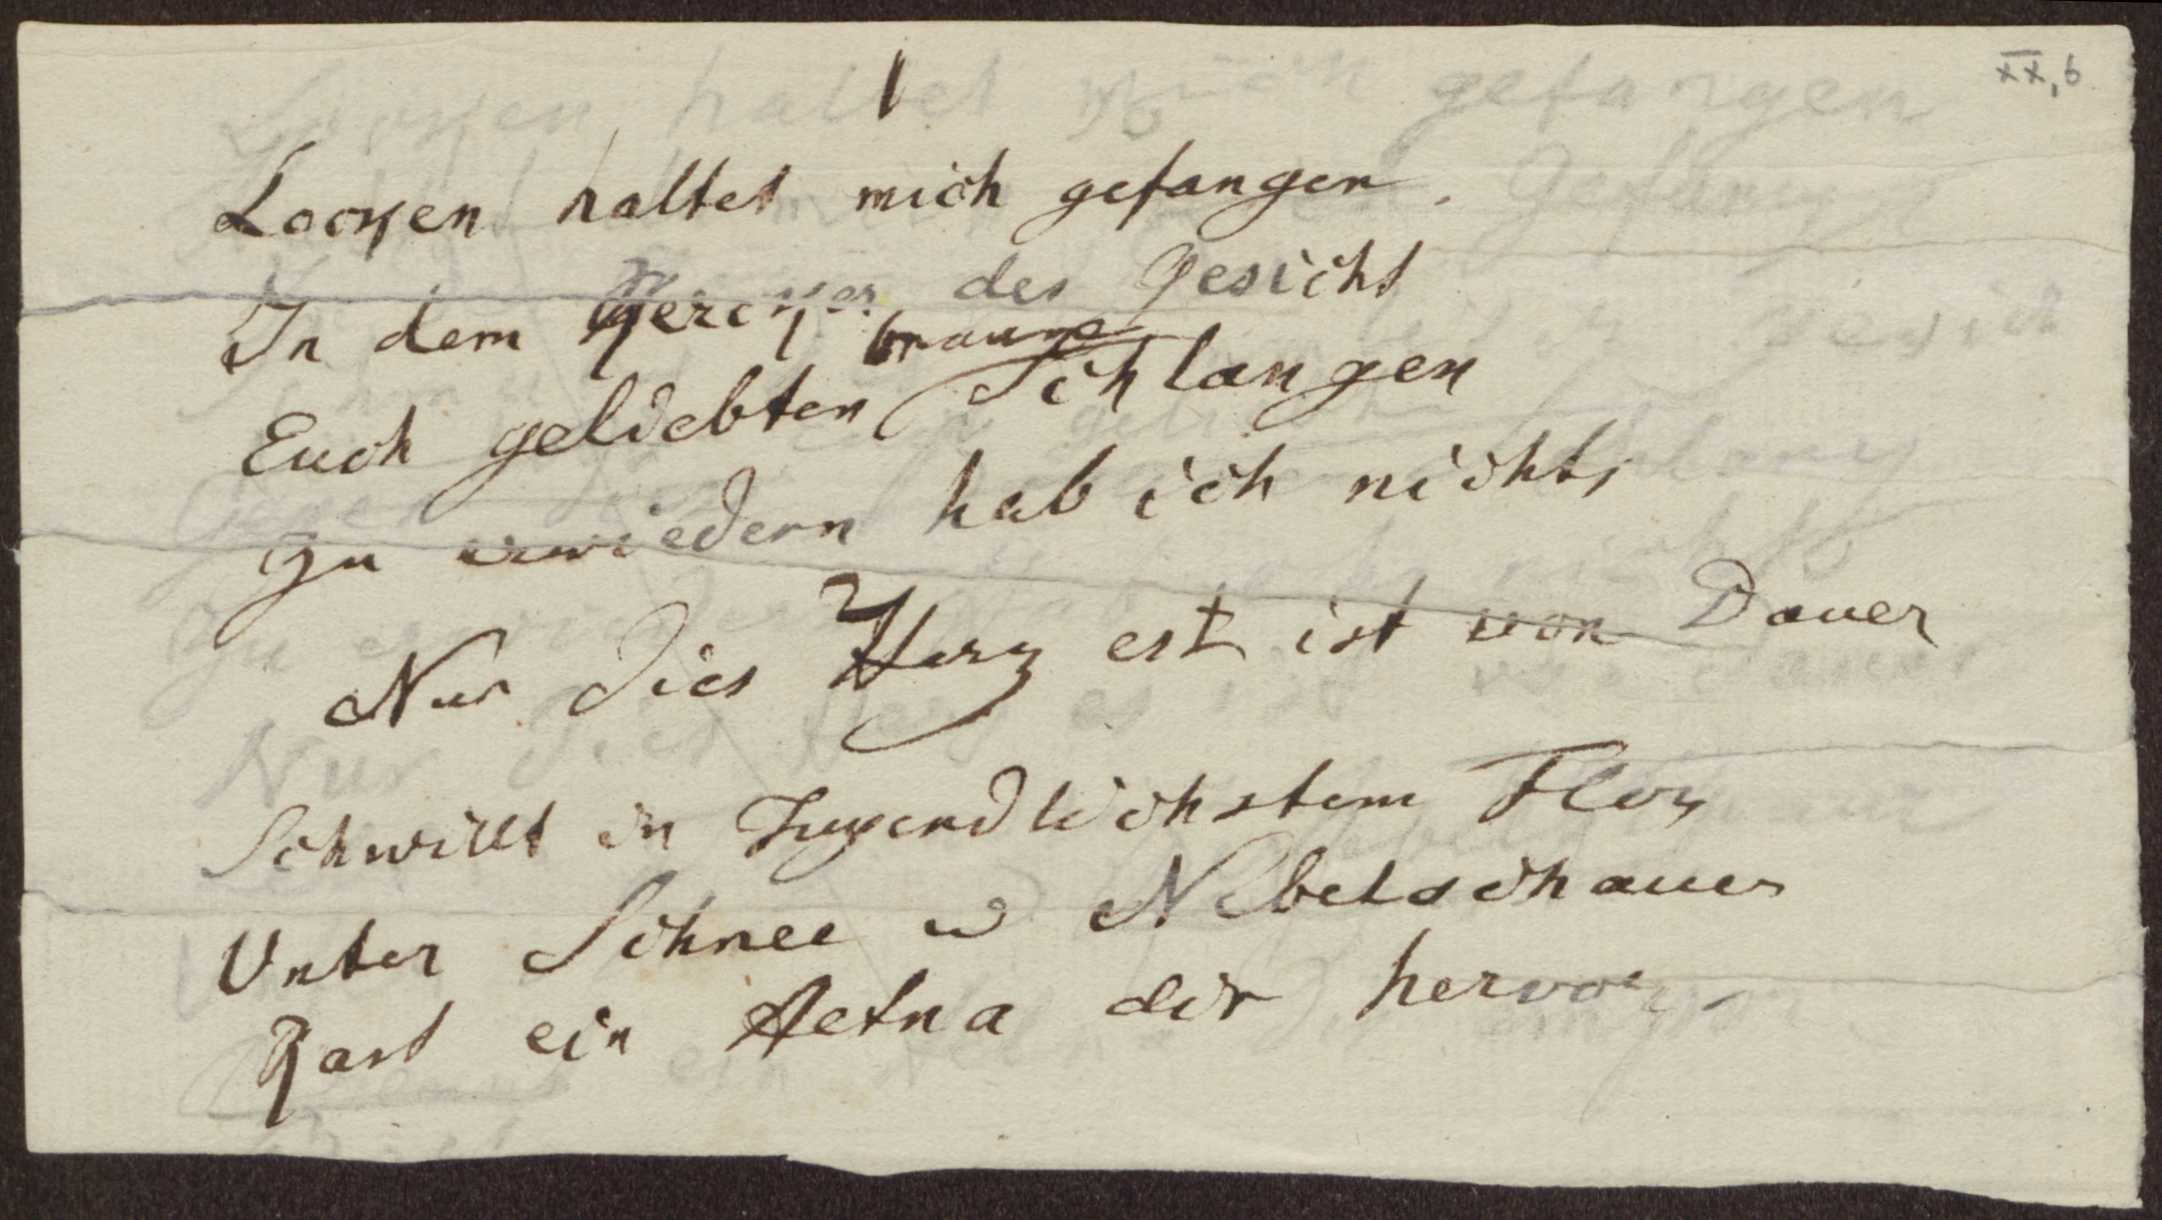 XX,6
1
Locken haltet mich gefangen.
In dem des Gesicht
braune
Euch geliebten Schlangen
zu erwiedern hab ich nichts
Nur dies Herz est ist von Dauer
Schwillt in Jugendlichstem Flor
Unter Schnee u Nebelschauer
Rast ein Aetna dir hervor.